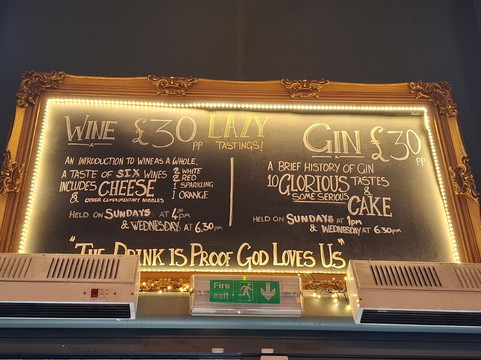 WINE £30 PP
LAZY
TASTINGS!
AN INTRODUCTION TO WINE AS A WHOLE.
A TASTE OF SIX WINES
INCLUDES CHEESE
& OTHER COMPLIMENTARY NIBBLES
2 WHITE
2 RED
1 SPARKLING
1 ORANGE
HELD ON SUNDAYS AT 4PM
& WEDNESDAY AT 6.30PM
GIN £30 PP
A BRIEF HISTORY OF GIN
10 GLORIOUS TASTES
& SOME SERIOUS
CAKE
HELD ON SUNDAYS AT 1PM
& WEDNESDAY AT 6.30PM
"THE DRINK IS PROOF GOD LOVES US"
Fire
exit